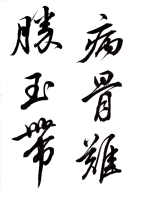 病骨難
勝玉帶